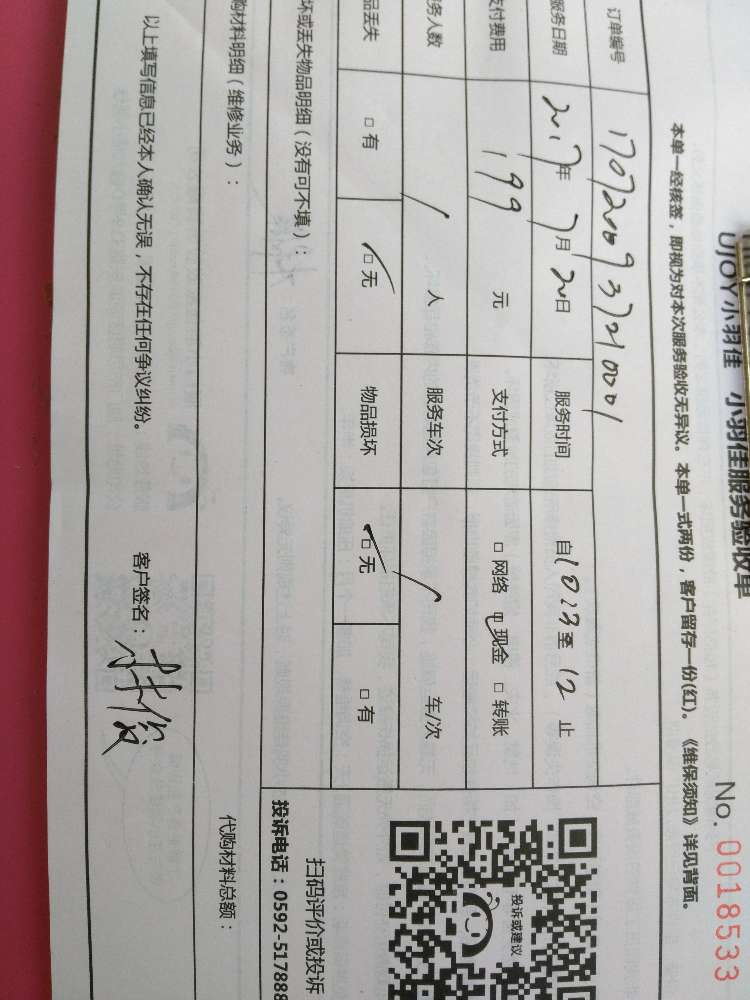 UJOY小羽佳 小羽佳服务验收单
No. 0018533
本单一经核签，即视为对本次服务验收无异议。本单一式两份，客户留存一份(红)。《维保须知》详见背面。
订单编号
服务日期 2017年7月20日 服务时间 自1023至12止
支付费用 199 元 支付方式 □网络 □现金 □转账
务人数 / 人 服务车次 / 车/次
品丢失 □有 □无 物品损坏 □无 □有
坏或丢失物品明细（没有可不填）：
购材料明细（维修业务）：
代购材料总额：
以上填写信息已经本人确认无误，不存在任何争议纠纷。 客户签名：
投诉或建议
扫码评价或投诉
投诉电话：0592-517888